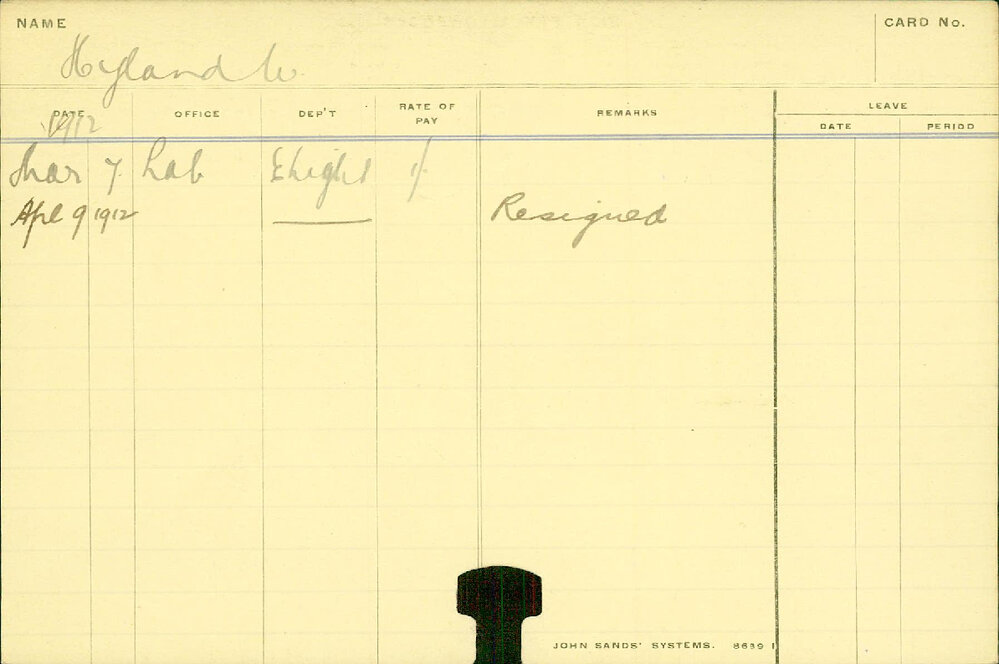 NAME
CARD No.
Hyland W.
DATE OFFICE DEP'T RATE OF PAY REMARKS LEAVE
DATE PERIOD
1912
Mar 7. Lab ELight 1/
Apl 9 1912 Resigned
JOHN SANDS' SYSTEMS. 8639